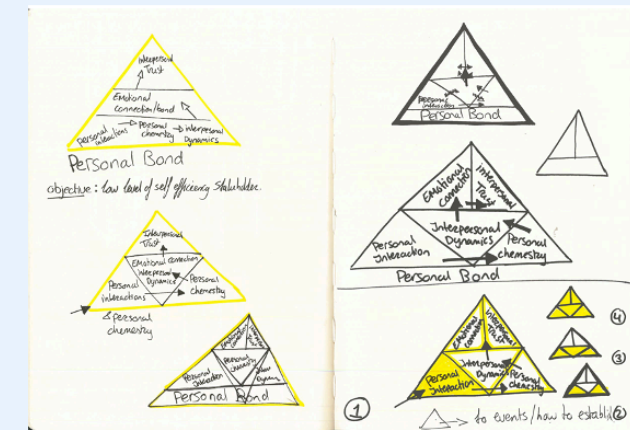 Interpersonal
Trust
Emotional
connection/bond
Personal
interactions
Personal
chemistry
interpersonal
Dynamics
Personal Bond
objective: low level of self efficing stakeholder.
Interpersonal
Trust
Emotional connection
Interpersonal
Dynamics
Personal
interactions
Personal
chemistry
Personal
chemestry
Personal
Interaction
Personal
chemistry
Personal Bond
Personal
interaction
Personal Bond
Emotional
connection
Interpersonal
Trust
Personal
Interaction
Interpersonal
Dynamics
Personal
chemistry
Personal Bond
Emotional
connection
Interpersonal
Trust
Personal
Interaction
Interpersonal
Dynamics
Personal
chemistry
4
3
2
1
to events/how to establish